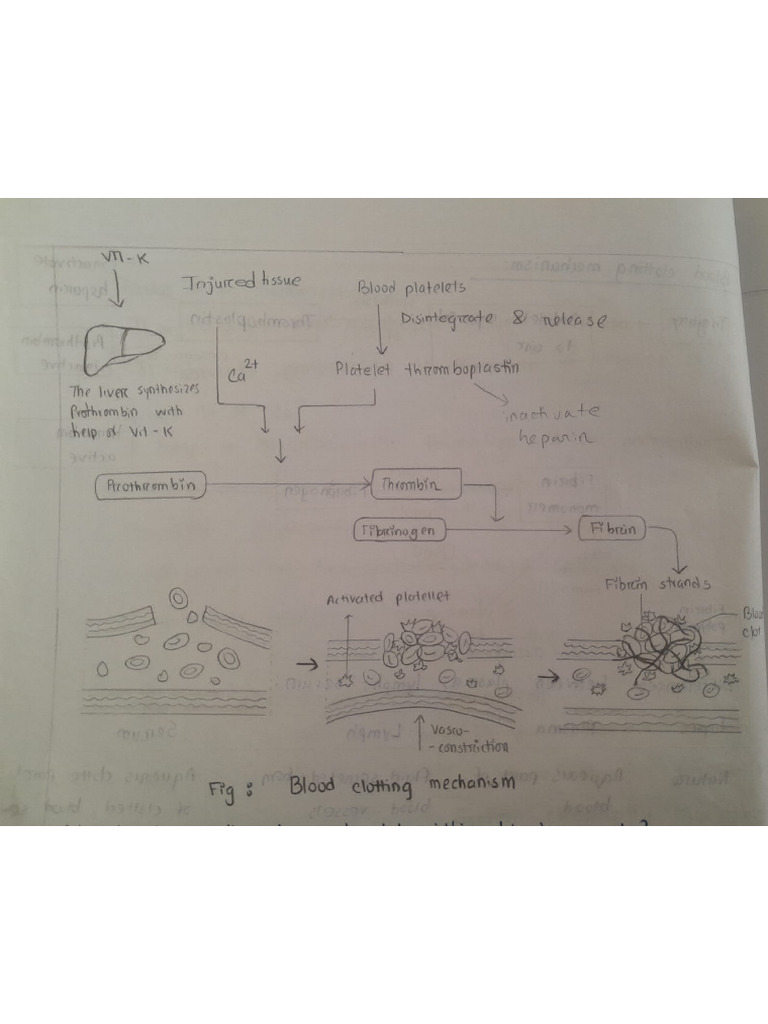 Vit-K
Injured tissue
Blood platelets
Disintegrate & release
Ca2+
Platelet thromboplastin
The liver synthesizes
Prothrombin with
help of Vit-K
inactivate
heparin
Prothrombin
Thrombin
Fibrinogen
Fibrin
Fibrin strands
Activated platellet
Blood
clot
Vasco-
-constriction
Fig: Blood clotting mechanism